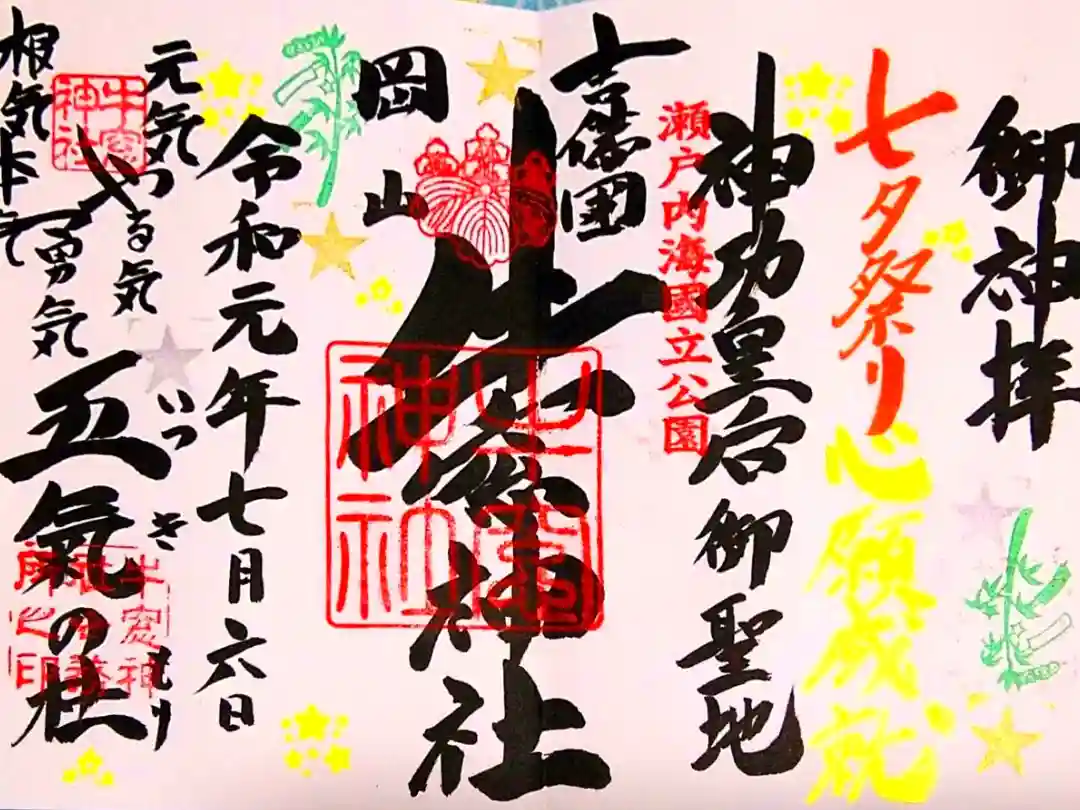 御神拝
七夕祭り
心願成就
神功皇后御聖地
瀬戸内海國立公園
吉備国
牛窓神社
岡山
令和元年七月六日
元気
やる気
勇気
根気
本気
五氣の社
いつきもり
牛窓神社
牛窓神社
牛窓神
之印